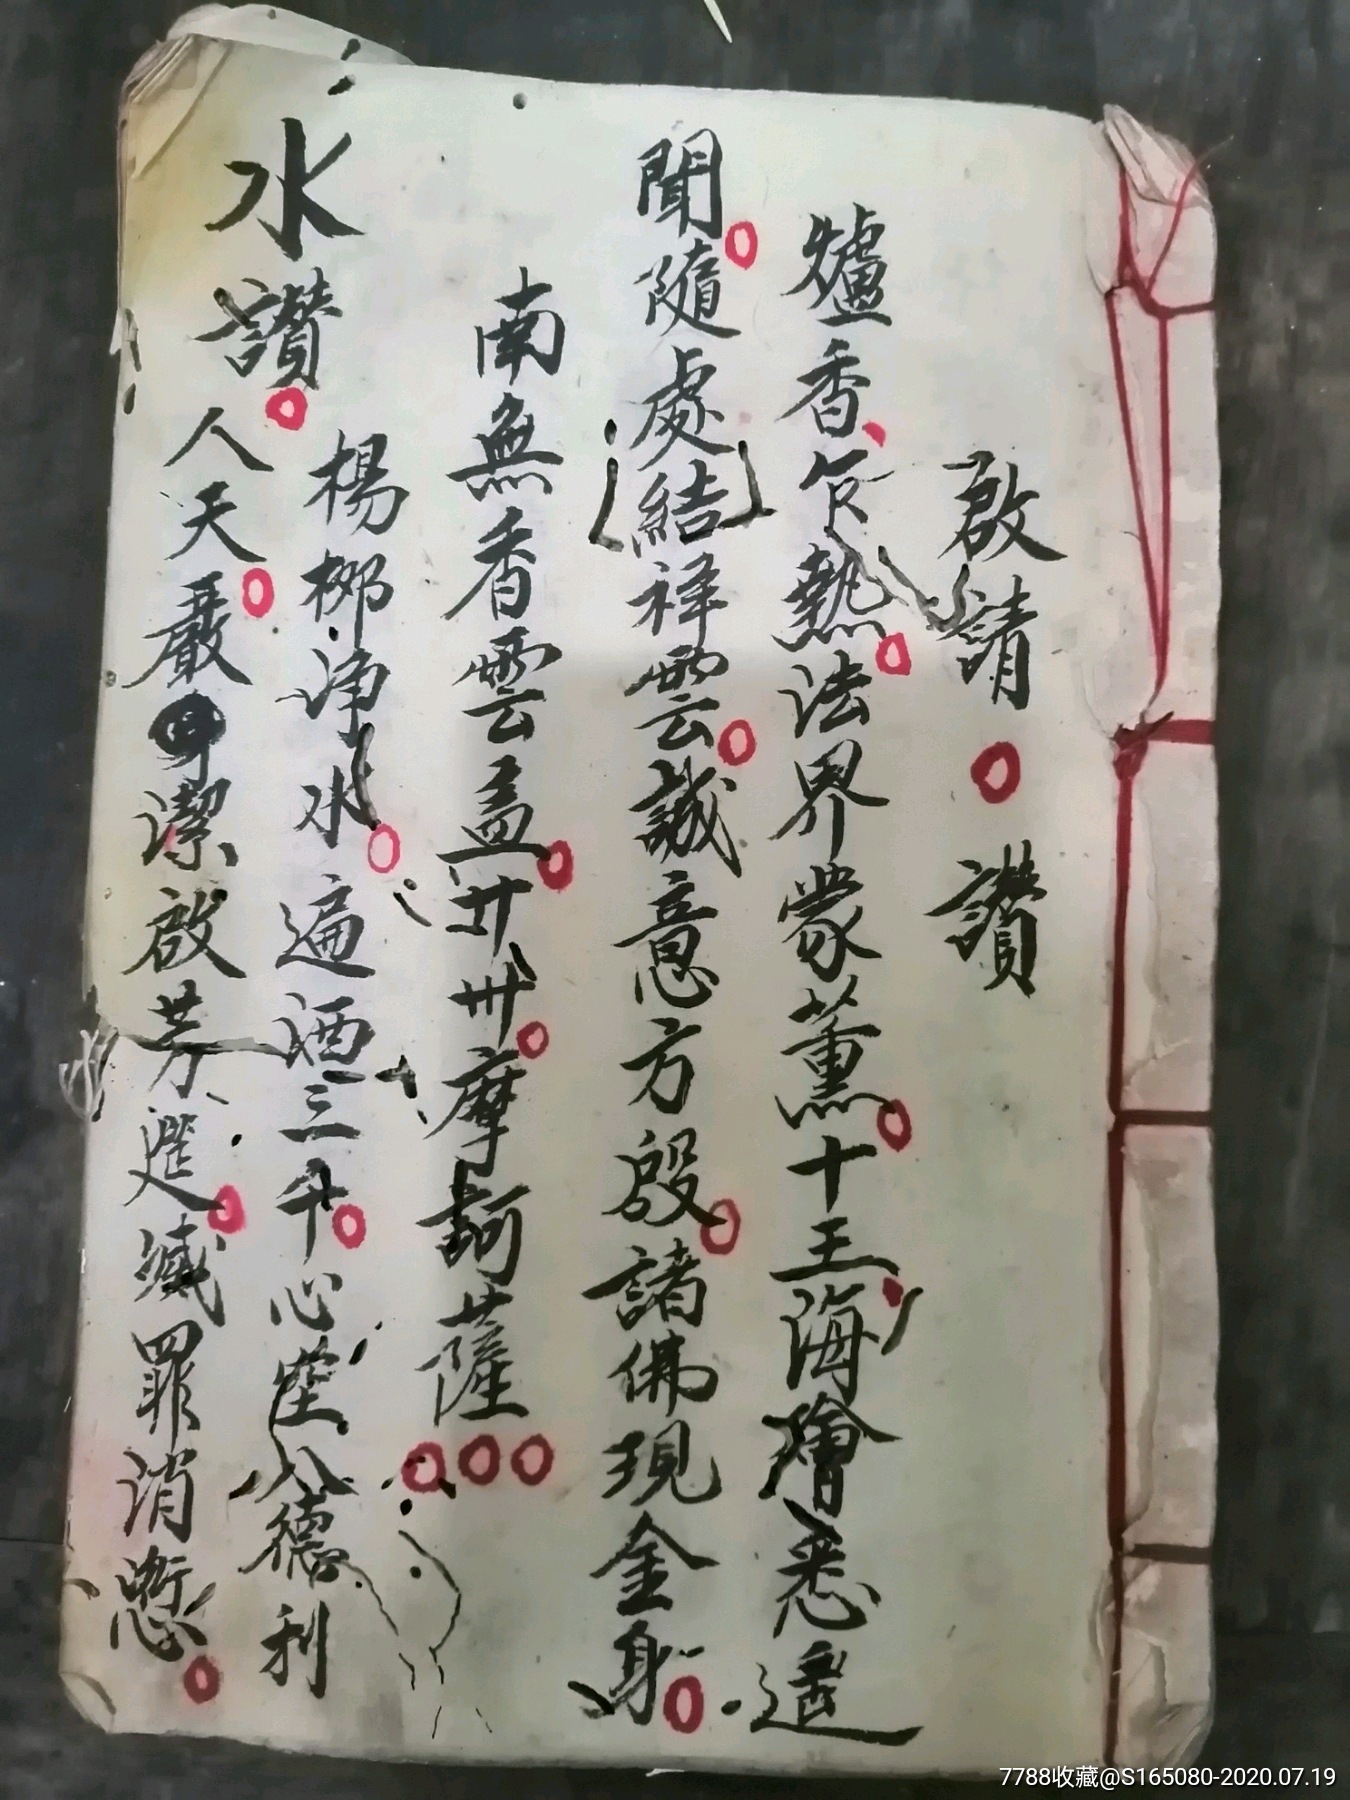 啟請讚
爐香乍熱法界蒙薰十王海噲悉遥
聞隨處結祥雲誠意方殷諸佛現金身
南無香雲盖廾卅摩訶薩
水讚
楊柳浄水遍洒三千心空八德利
人天嚴潔啟芳筵滅罪消愆
7788收藏@S165080-2020.07.19